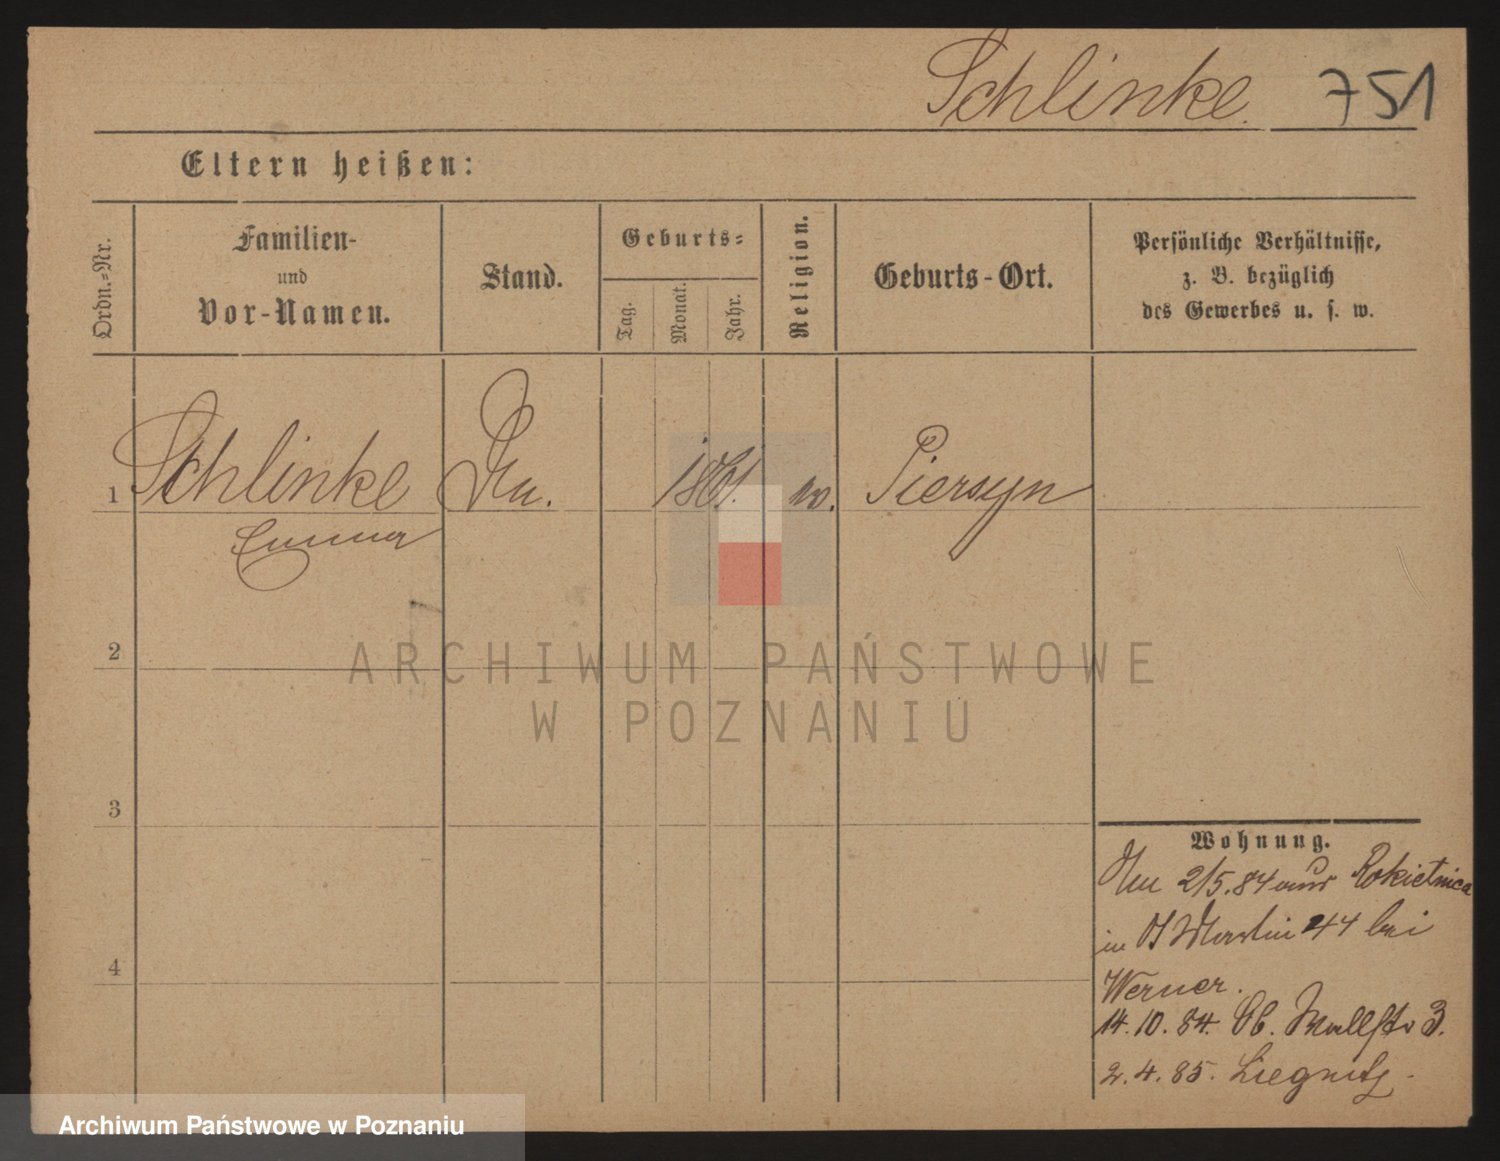 Schlinke. 751
Eltern heißen:
Ordn.-Nr.
Familien-
und
Vor-Namen.
Stand.
Geburts-
Tag.
Monat.
Jahr.
Religion.
Geburts-Ort.
Persönliche Verhältnisse,
z. B. bezüglich
des Gewerbes u. s. w.
1 Schlinke 1861. Piersyn
Emma
2
3
4
Wohnung.
2/5.84 aus Rokietnica
in St Martin 44 bei
Werner.
14.10.84. Ob. Wallstr 3.
2.4.85. Liegnitz.
ARCHIWUM PAŃSTWOWE
W POZNANIU
Archiwum Państwowe w Poznaniu